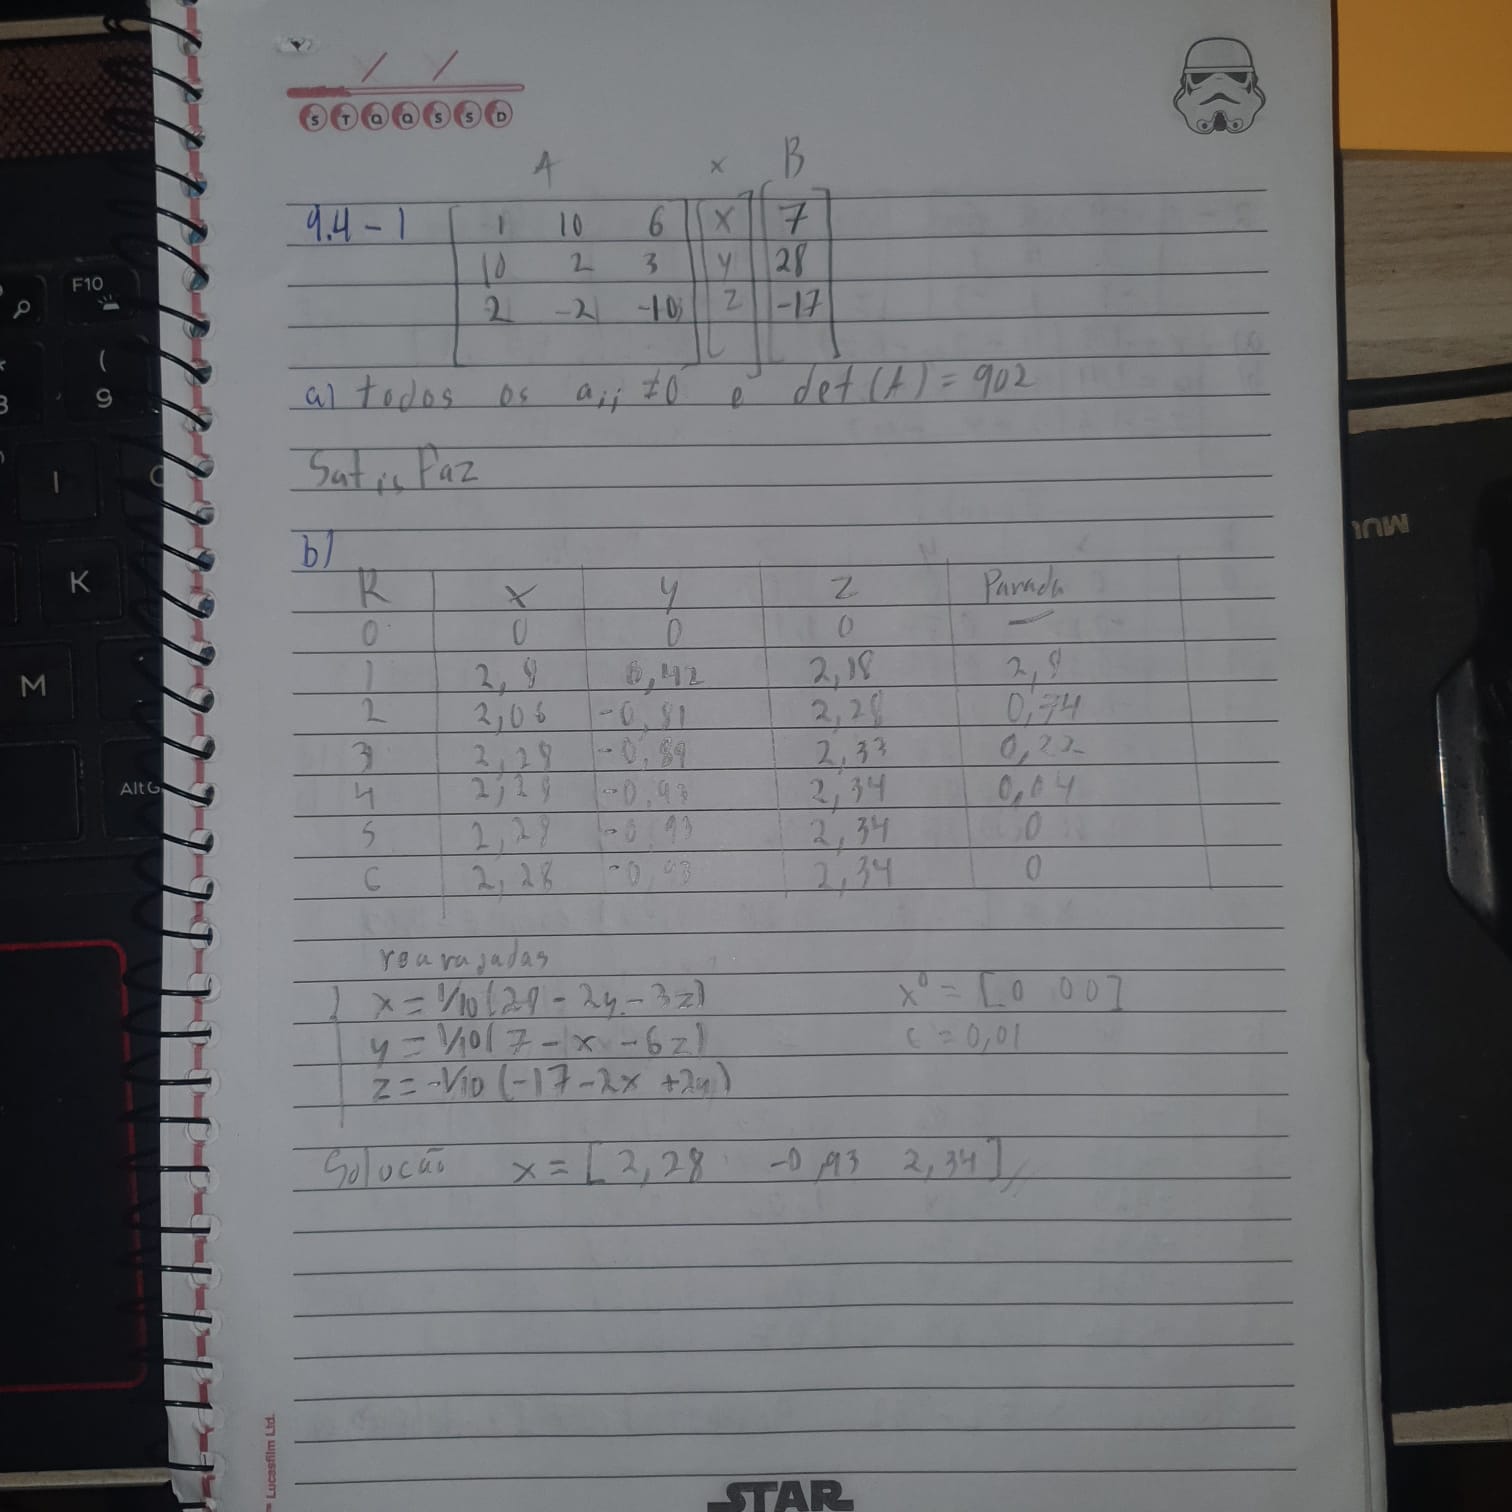 S T Q Q S S D
A x B
9.4-1 1 10 6 x 7
10 2 3 y 28
2 -2 -10 z -17
a) todos os aii ≠0 e det(A)=902
Satisfaz
b)
K x y z Parada
0 0 0 0 —
1 2,8 0,42 2,18 2,8
2 2,06 -0,81 2,28 0,74
3 2,28 -0,89 2,33 0,22
4 2,28 -0,93 2,34 0,04
5 2,28 -0,93 2,34 0
6 2,28 -0,93 2,34 0
rearajadas
x = 1/10(28 - 2y - 3z) x⁰ = [0 0 0]
y = 1/10(7 - x - 6z) ε = 0,01
z = -1/10(-17 - 2x + 2y)
Solução x = [2,28 -0,93 2,34]
Lucasfilm Ltd.
STAR
F10
(
9
I
K
M
AltG